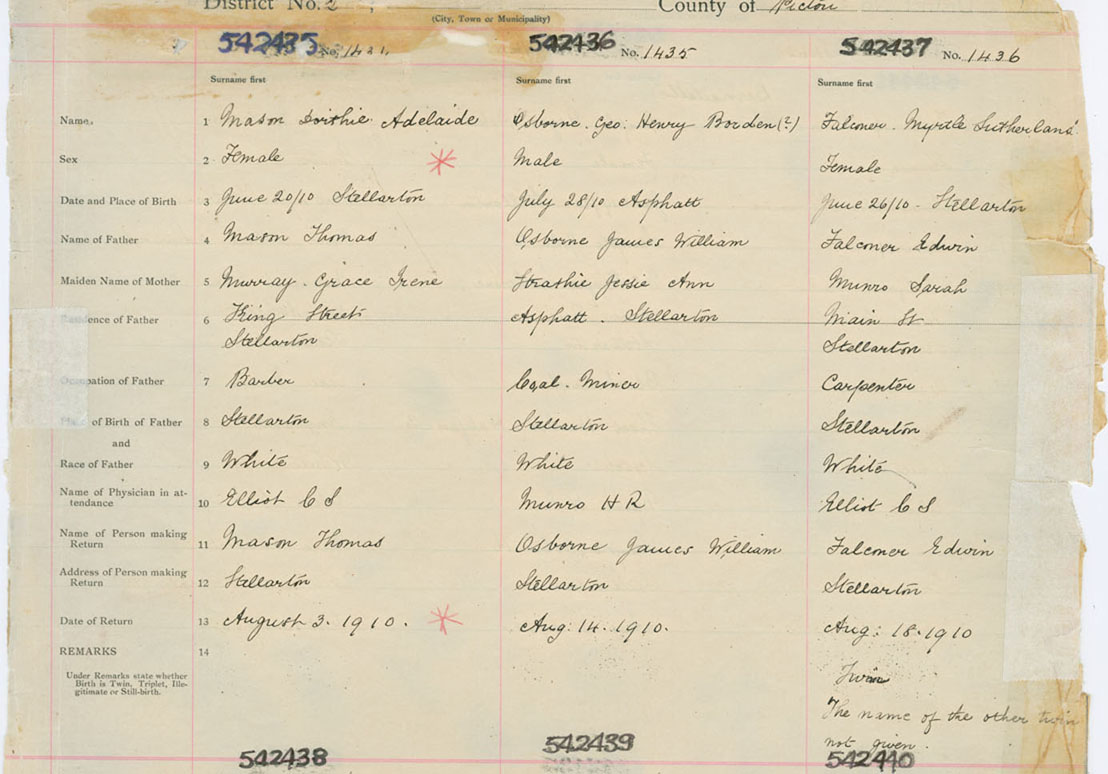 District No. 2
County of Pictou
(City, Town or Municipality)
542435 No. 542436 No. 1435 542437 No. 1436
Surname first Surname first Surname first
Name. 1 Mason Adelaide Osborne. Geo: Henry Borden (?) Falconer. Myrtle Sutherland
Sex 2 Female Male Female
Date and Place of Birth 3 June 20/10 Stellarton July 28/10 Asphalt June 26/10 - Stellarton
Name of Father 4 Mason Thomas Osborne James William Falconer Edwin
Maiden Name of Mother 5 Murray. Grace Irene Strathie Jessie Ann Munro Sarah
Residence of Father 6 King Street Asphalt. Stellarton Main St
Stellarton Stellarton
Occupation of Father 7 Barber Coal. Miner Carpenter
Place of Birth of Father 8 Stellarton Stellarton Stellarton
and
Race of Father 9 White White White
Name of Physician in at-
tendance 10 Elliot C S Munro H R Elliot C S
Name of Person making
Return 11 Mason Thomas Osborne James William Falconer Edwin
Address of Person making
Return 12 Stellarton Stellarton Stellarton
Date of Return 13 August 3. 1910. Aug: 14. 1910. Aug: 18. 1910
REMARKS 14
Under Remarks state whether
Birth is Twin, Triplet, Ille-
gitimate or Still-birth.
Twin
The name of the other twin
not given.
542438 542439 542440